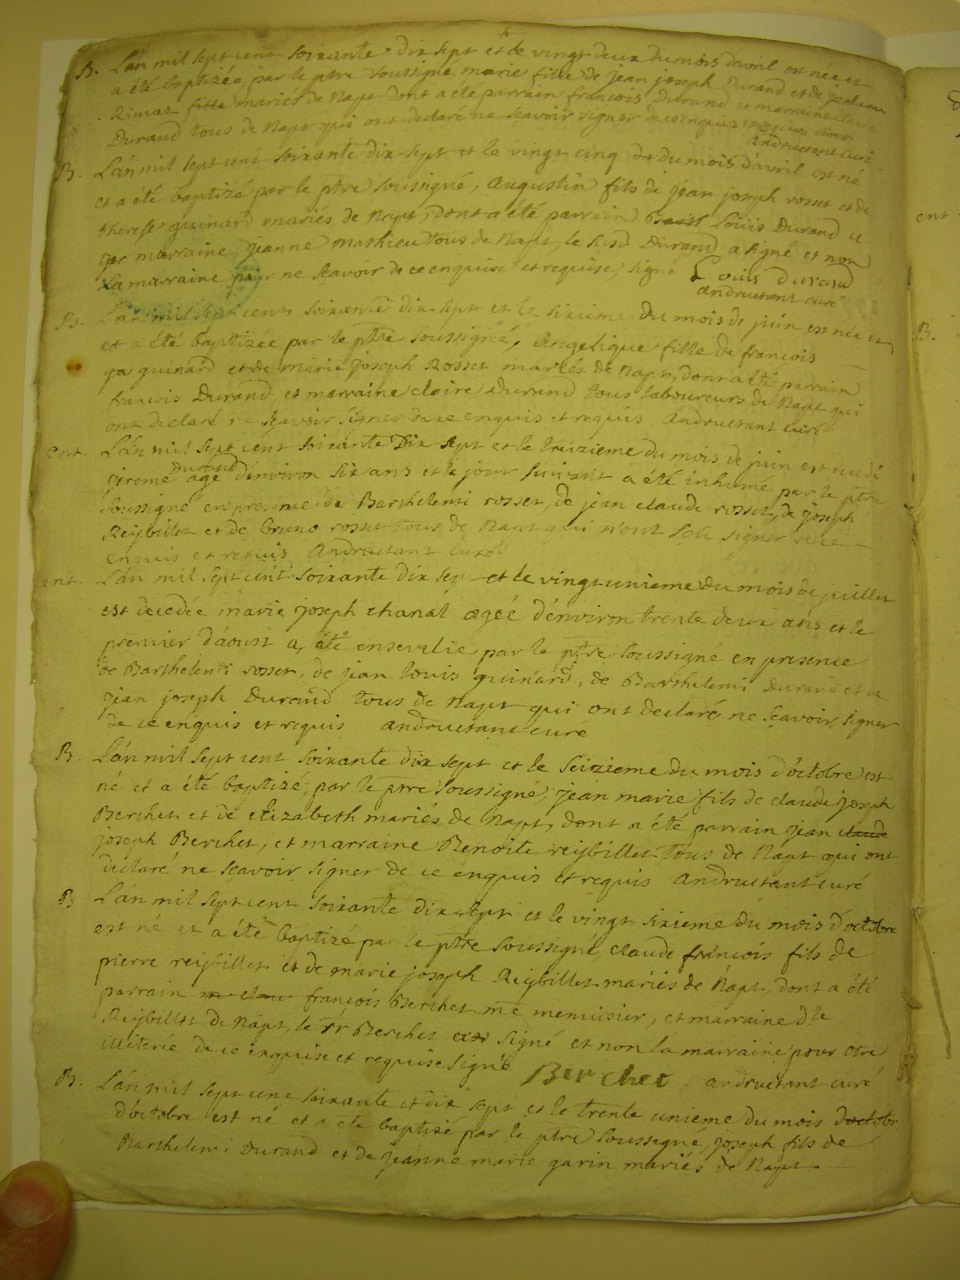 B. L'an mil sept cent soixante dix sept et le vingt deux du mois d'avril est née et
a été baptizée par le ptre soussigné marie fille de jean joseph Durand et de
Rimaz mariés de Napt dont a été parrain françois Durand et marraine claire
Durand tous de Napt qui ont declaré ne scavoir signer de ce enquis et requis
andruetant curé
B. L'an mil sept cent soixante dix sept et le vingt cinq du mois d'avril est né
et a été baptizé par le ptre soussigné, augustin fils de jean joseph rosset et de
therese guinard mariés de Napt, dont a été parrain Louis Durand et
marraine jeanne mathieu tous de Napt, le susd Durand a signé et non
la marraine pour ne scavoir de ce enquise et requise, signé Louis durand
andruetant curé
B. L'an mil sept cent soixante dix sept et le sixieme du mois de juin est née et
et a été baptizée par le ptre soussigné, Angelique fille de françois
guinard et de marie joseph Rosset mariés de Napt, dont a été parrain
françois Durand et marraine claire Durand tous laboureurs de Napt qui
ont declaré ne scavoir signer de ce enquis et requis andruetant curé
ent. L'an mil sept cent soixante Dix sept et le treizieme du mois de juin est decedé
jerome durand agé d'environ six ans et le jour suivant a été inhumé par le ptre
soussigné en presence de Barthelemi rosset, de jean claude rosset, de joseph
Reybillet et de bruno rosset tous de Napt qui n'ont sçu signer de ce
enquis et requis andruetant curé
ent. L'an mil sept cent soixante dix sep et le vingt unieme du mois de juillet
est decedée marie joseph chanal agéé d'environ trente deux ans et le
premier d'aoust a été ensevelie par le ptre soussigné en presence
de Barthelemi rosset, de jean louis guinard, de Barthelemi Durand et de
jean joseph Durand tous de Napt qui ont declaré ne scavoir signer
de ce enquis et requis andruetant curé
B. L'an mil sept cent soixante dix sept et le seizieme du mois d'octobre est
né et a été baptizé, par le ptre soussigné, jean marie fils de claude joseph
Berchet et de elizabeth mariés de Napt, dont a été parrain jean claude
joseph Berchet, et marraine Benoite reybillet tous de Napt qui ont
declaré ne scavoir signer de ce enquis et requis andruetant curé
B. L'an mil sept cent soixante dix sept et le vingt sixieme du mois d'octobre
est né et a été baptizé par le ptre soussigné, claude françois fils de
pierre reybillet et de marie joseph Reybillet mariés de Napt, dont a été
parrain françois Berchet me menuisier, et marraine dlle
Reybillet de Napt, le sr Berchet signé et non la marraine pour etre
illiterée de ce enquise et requise signé Berchet andruetant curé
B. L'an mil sept cent soixante et dix sept et le trente unieme du mois d'octobr
d'octobre est né et a été baptisé par le ptre soussigné joseph fils de
Barthelemi Durand et de jeanne marie garin mariés de Napt